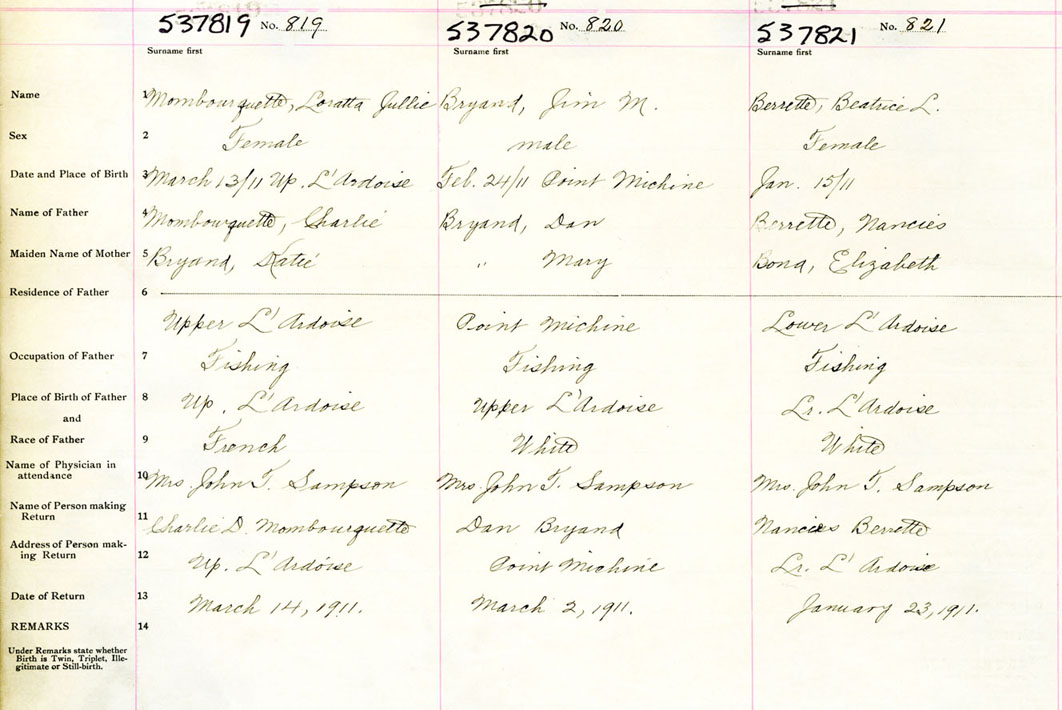 537819 No. 819 537820 No. 820 537821 No. 821
Surname first Surname first Surname first
Name 1 Mombourquette, Loratta Jullie Bryand, Jim M. Berrette, Beatrice L.
Sex 2 Female male Female
Date and Place of Birth 3 March 13/11 Up. L'Ardoise Feb. 24/11 Point Michine Jan. 15/11
Name of Father 4 Mombourquette, Charlie Bryand, Dan Berrette, Nancies
Maiden Name of Mother 5 Bryand, Katie " Mary Bona, Elizabeth
Residence of Father 6
Upper L'Ardoise Point Michine Lower L'Ardoise
Occupation of Father 7 Fishing Fishing Fishing
Place of Birth of Father 8 Up. L'Ardoise Upper L'Ardoise Lr. L'Ardoise
and
Race of Father 9 French White White
Name of Physician in
attendance 10 Mrs. John T. Sampson Mrs. John T. Sampson Mrs. John T. Sampson
Name of Person making
Return 11 Charlie D. Mombourquette Dan Bryand Nancies Berrette
Address of Person mak-
ing Return 12 Up. L'Ardoise Point Michine Lr. L'Ardoise
Date of Return 13 March 14, 1911. March 2, 1911. January 23, 1911.
REMARKS 14
Under Remarks state whether
Birth is Twin, Triplet, Ille-
gitimate or Still-birth.